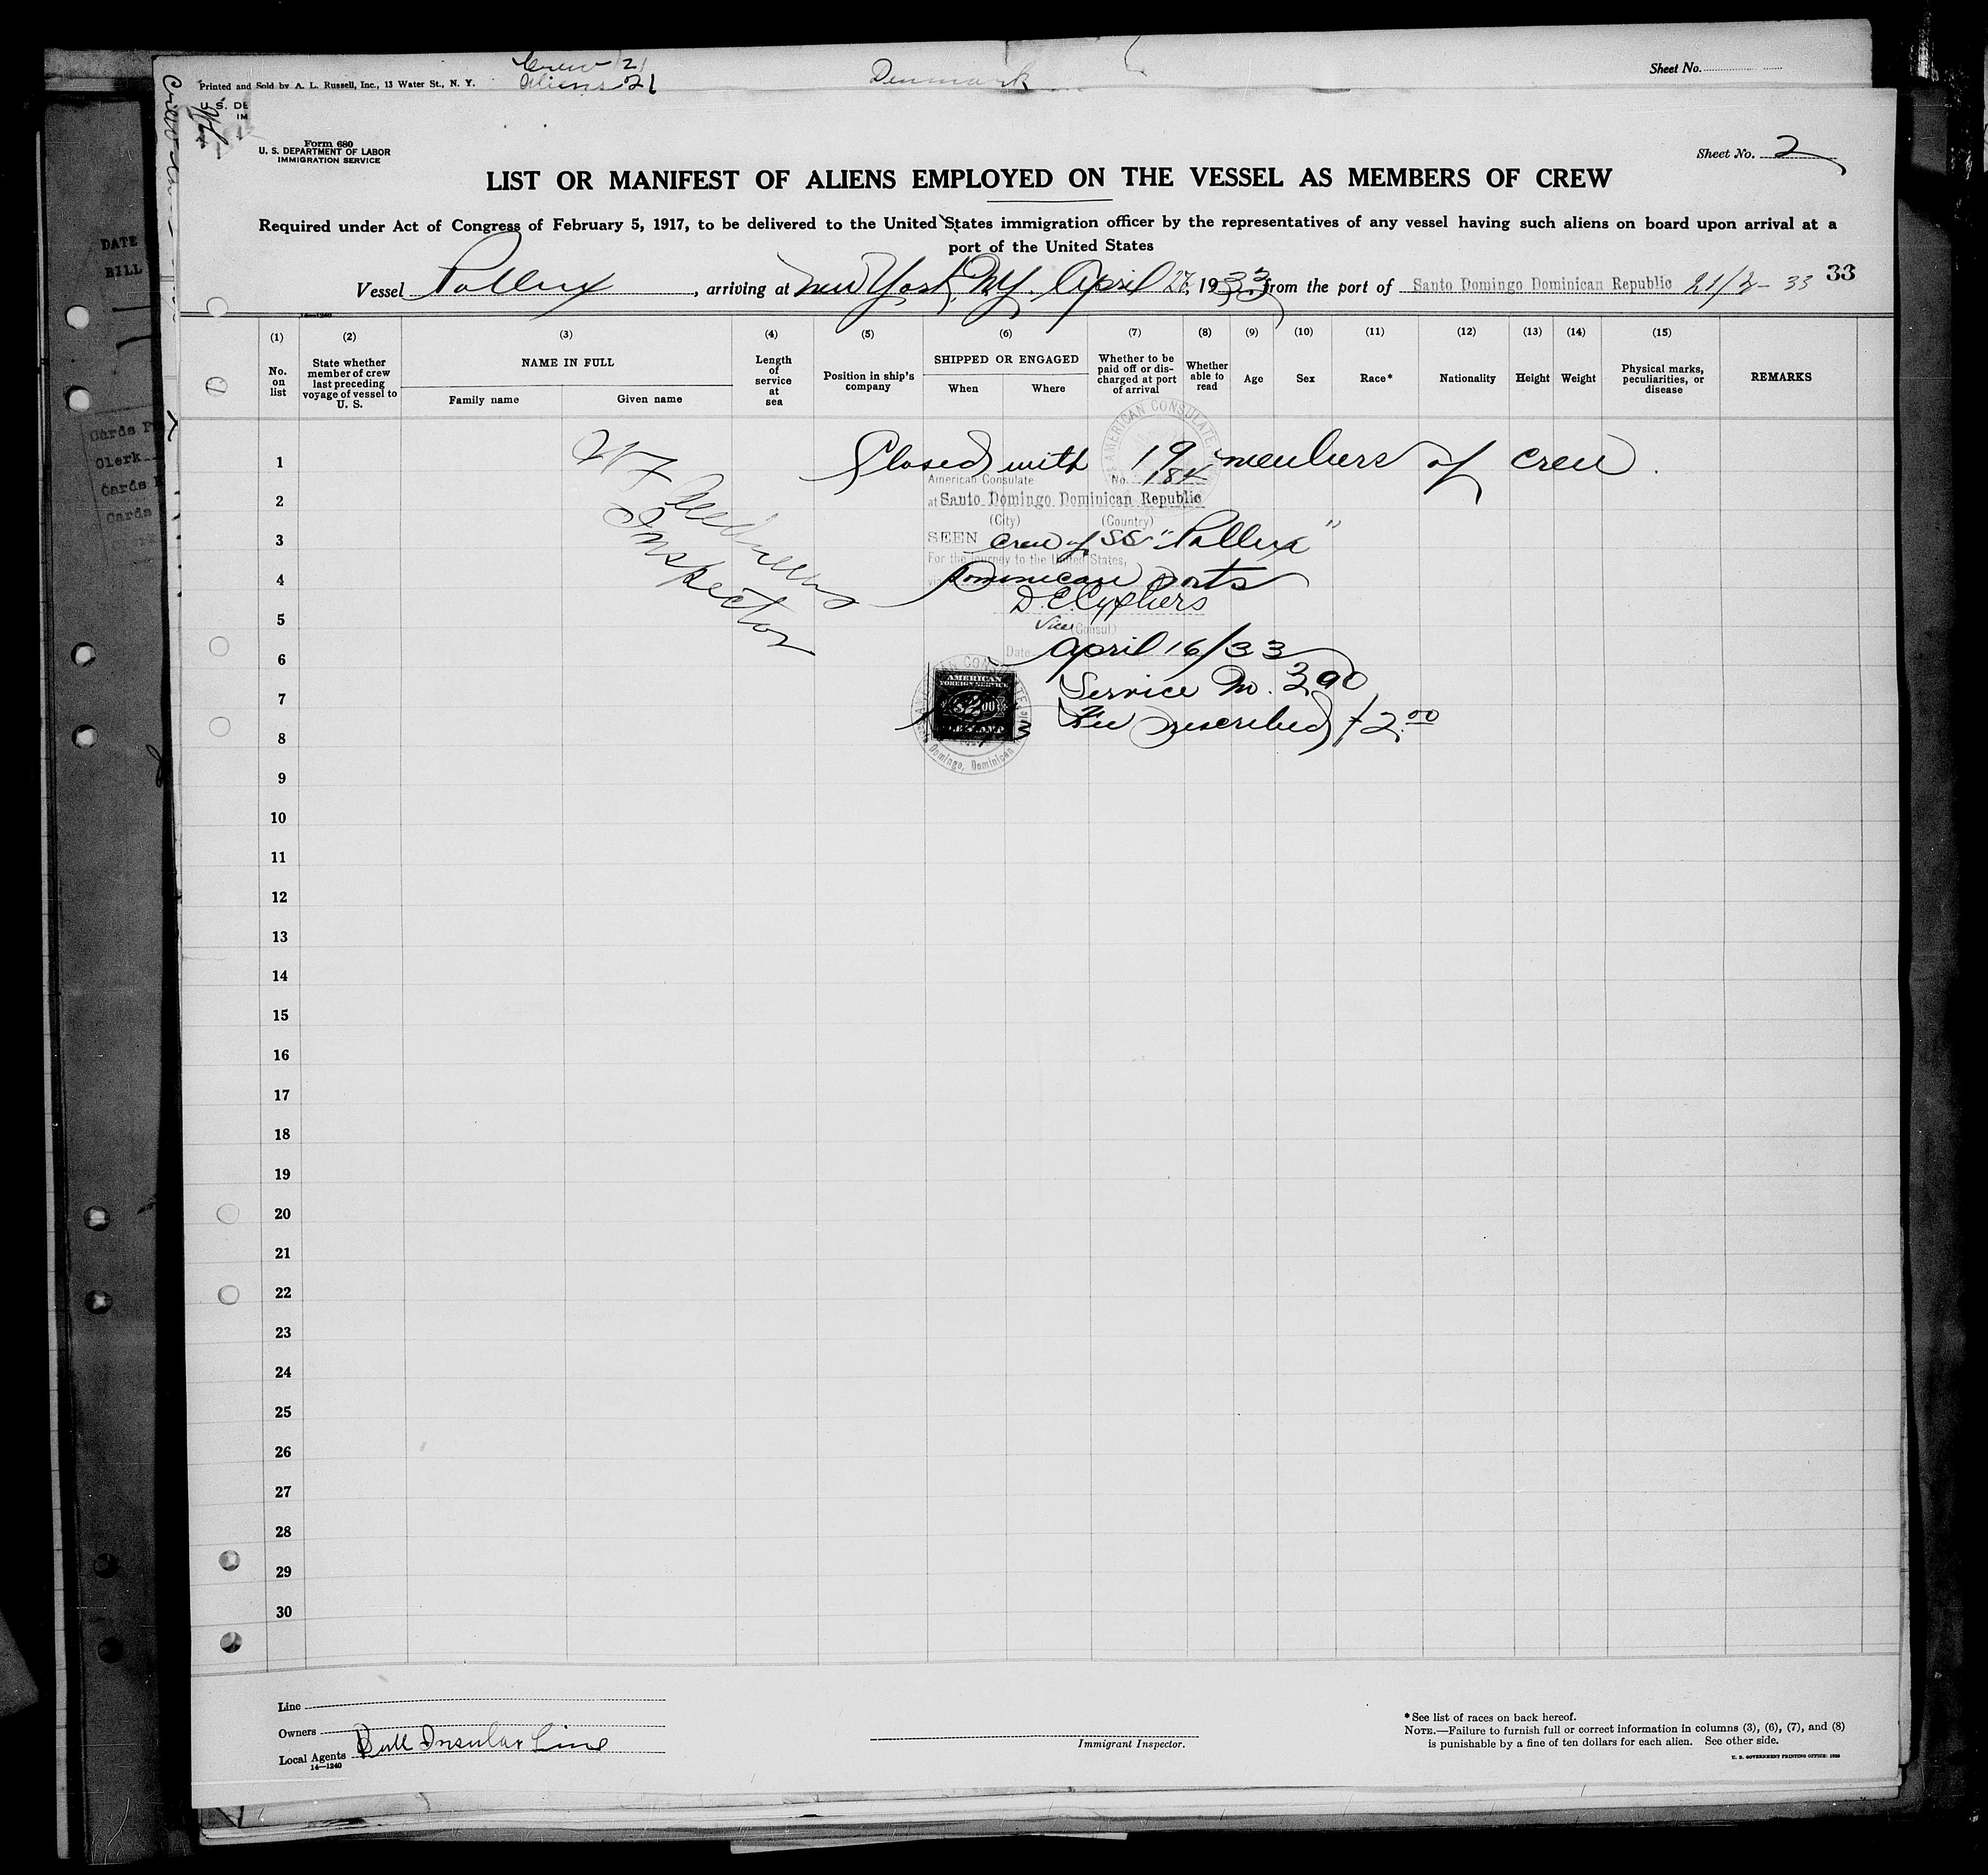 Crew 21
Printed and Sold by A. L. Russell, Inc., 13 Water St., N. Y.
Aliens 21
Denmark
Sheet No.
U. S. DE
IM
Form 680
U. S. DEPARTMENT OF LABOR
IMMIGRATION SERVICE
Sheet No. 2
LIST OR MANIFEST OF ALIENS EMPLOYED ON THE VESSEL AS MEMBERS OF CREW
Required under Act of Congress of February 5, 1917, to be delivered to the United States immigration officer by the representatives of any vessel having such aliens on board upon arrival at a
port of the United States
Vessel Pollux, arriving at New York, N.Y. April 27, 1933, from the port of Santo Domingo Dominican Republic 21/4-33 33
14—1240
(1) (2) (3) (4) (5) (6) (7) (8) (9) (10) (11) (12) (13) (14) (15)
No. on list
State whether member of crew last preceding voyage of vessel to U. S.
NAME IN FULL
Family name
Given name
Length of service at sea
Position in ship's company
SHIPPED OR ENGAGED
When
Where
Whether to be paid off or discharged at port of arrival
Whether able to read
Age
Sex
Race*
Nationality
Height
Weight
Physical marks, peculiarities, or disease
REMARKS
DATE
BILL
Cards
Clerk
Cards
Cards
AMERICAN CONSULATE
1 Closed with 19 members of crew.
American Consulate No. 184
2 at Santo Domingo Dominican Republic
(City) (Country)
3 SEEN Crew of SS "Pollux"
For the journey to the United States,
4 via Dominican ports
D. E. Cyphers
5 Vice (Consul)
Inspector
Date April 16/33
6
Service No. 390
7 AMERICAN
FOREIGN SERVICE
$2.00
Fee prescribed $2.00
8
Domingo, Dominican
9
10
11
12
13
14
15
16
17
18
19
20
21
22
23
24
25
26
27
28
29
30
Line
Owners
Local Agents Bull Insular Line
14—1240
Immigrant Inspector.
*See list of races on back hereof.
NOTE.—Failure to furnish full or correct information in columns (3), (6), (7), and (8)
is punishable by a fine of ten dollars for each alien. See other side.
U. S. GOVERNMENT PRINTING OFFICE: